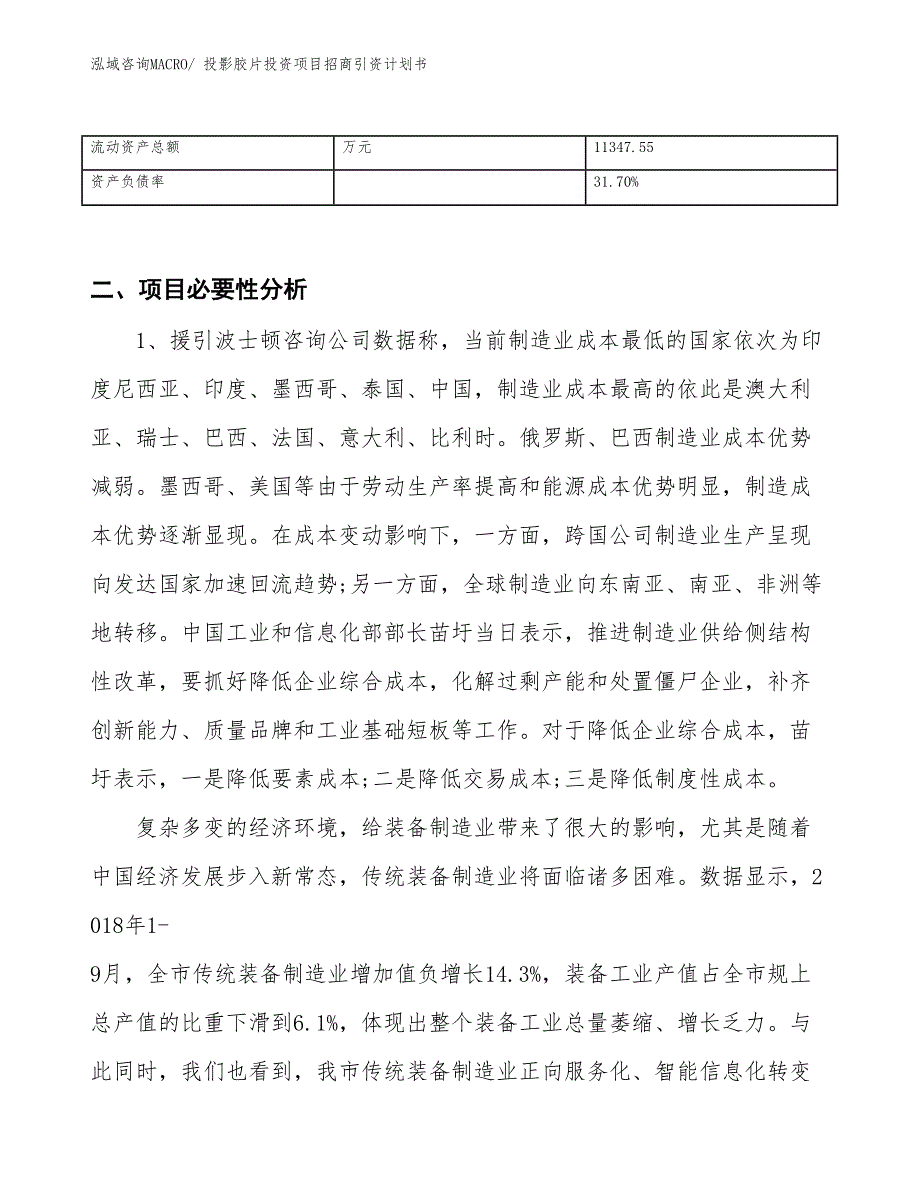 泓域咨询MACRO/ 投影胶片投资项目招商引资计划书
流动资产总额 万元 11347.55
资产负债率 31.70%
二、项目必要性分析
1、援引波士顿咨询公司数据称，当前制造业成本最低的国家依次为印
度尼西亚、印度、墨西哥、泰国、中国，制造业成本最高的依此是澳大利
亚、瑞士、巴西、法国、意大利、比利时。俄罗斯、巴西制造业成本优势
减弱。墨西哥、美国等由于劳动生产率提高和能源成本优势明显，制造成
本优势逐渐显现。在成本变动影响下，一方面，跨国公司制造业生产呈现
向发达国家加速回流趋势;另一方面，全球制造业向东南亚、南亚、非洲等
地转移。中国工业和信息化部部长苗圩当日表示，推进制造业供给侧结构
性改革，要抓好降低企业综合成本，化解过剩产能和处置僵尸企业，补齐
创新能力、质量品牌和工业基础短板等工作。对于降低企业综合成本，苗
圩表示，一是降低要素成本;二是降低交易成本;三是降低制度性成本。
复杂多变的经济环境，给装备制造业带来了很大的影响，尤其是随着
中国经济发展步入新常态，传统装备制造业将面临诸多困难。数据显示，2
018年1-
9月，全市传统装备制造业增加值负增长14.3%，装备工业产值占全市规上
总产值的比重下滑到6.1%，体现出整个装备工业总量萎缩、增长乏力。与
此同时，我们也看到，我市传统装备制造业正向服务化、智能信息化转变